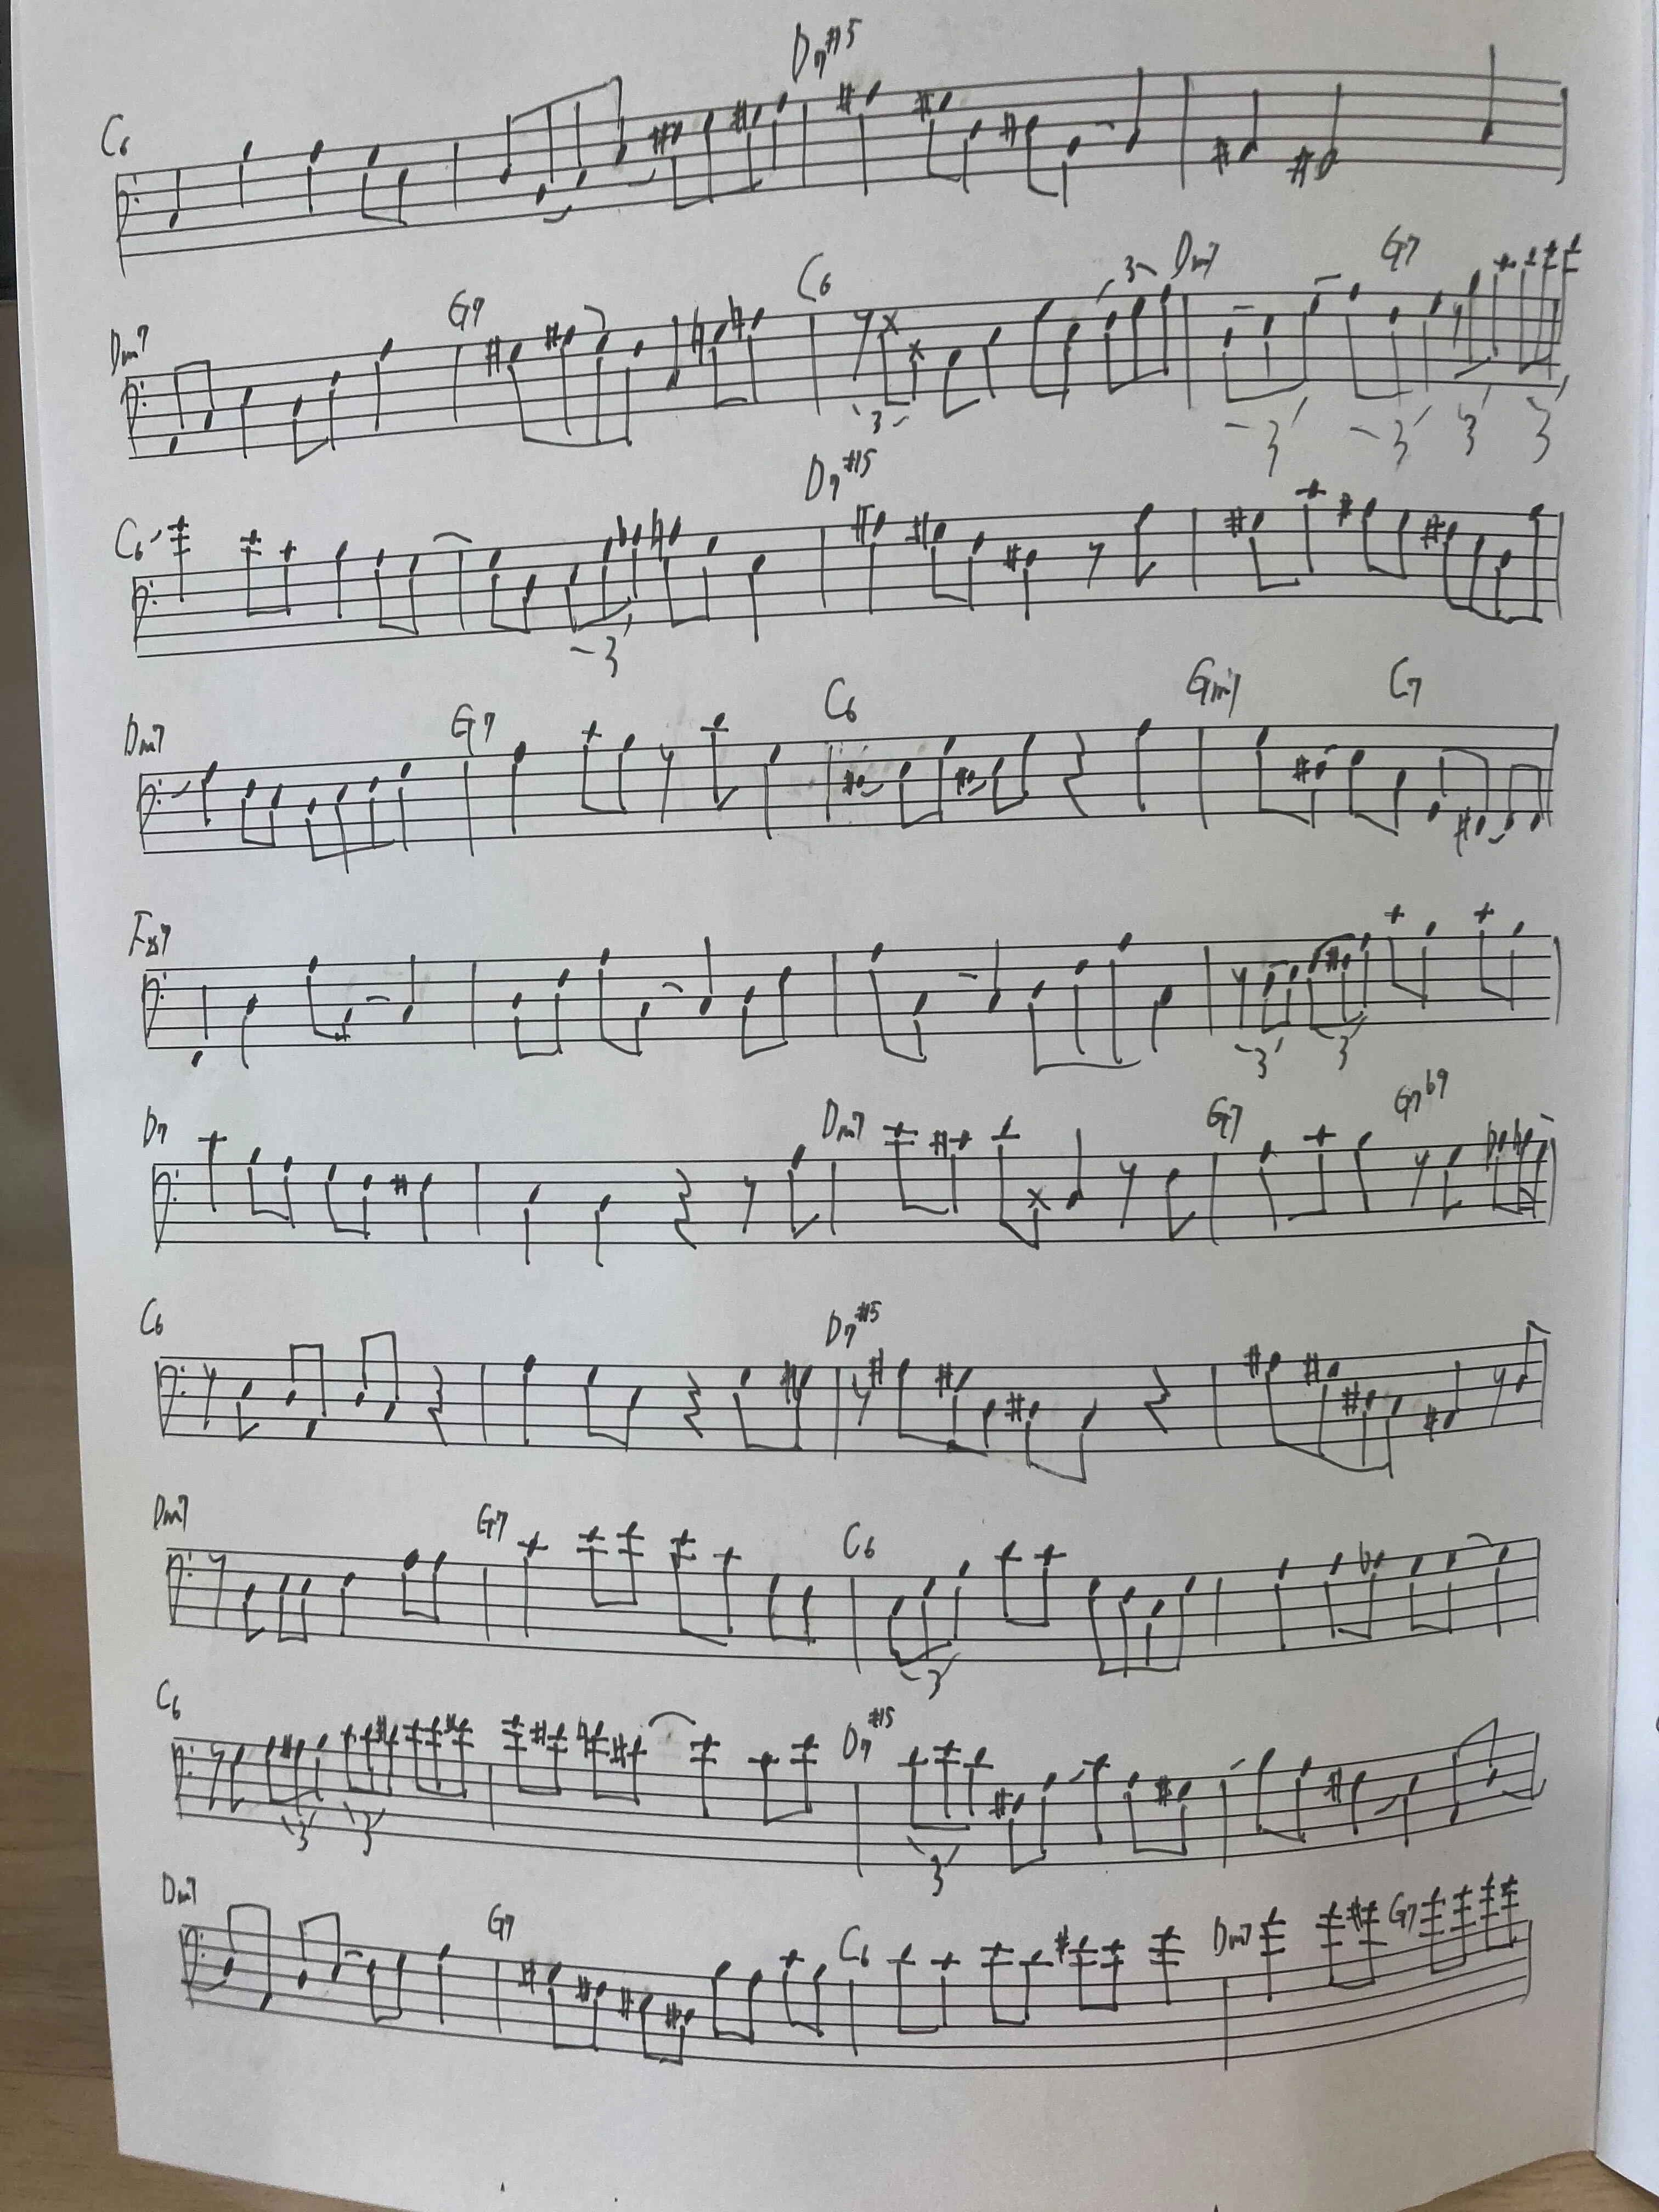 D7#5
C6
Dm7 G7 C6 3 Dm7 G7
3 3 3 3 3
C6 D7#5
3
Dm7 G7 C6 Gm7 C7
3 3
D7 Dm7 G7 G7b9
C6 D7#5
Dm7 G7 C6
3
C6 D7#5
3 3 3
Dm7 G7 C6 Dm7 G7